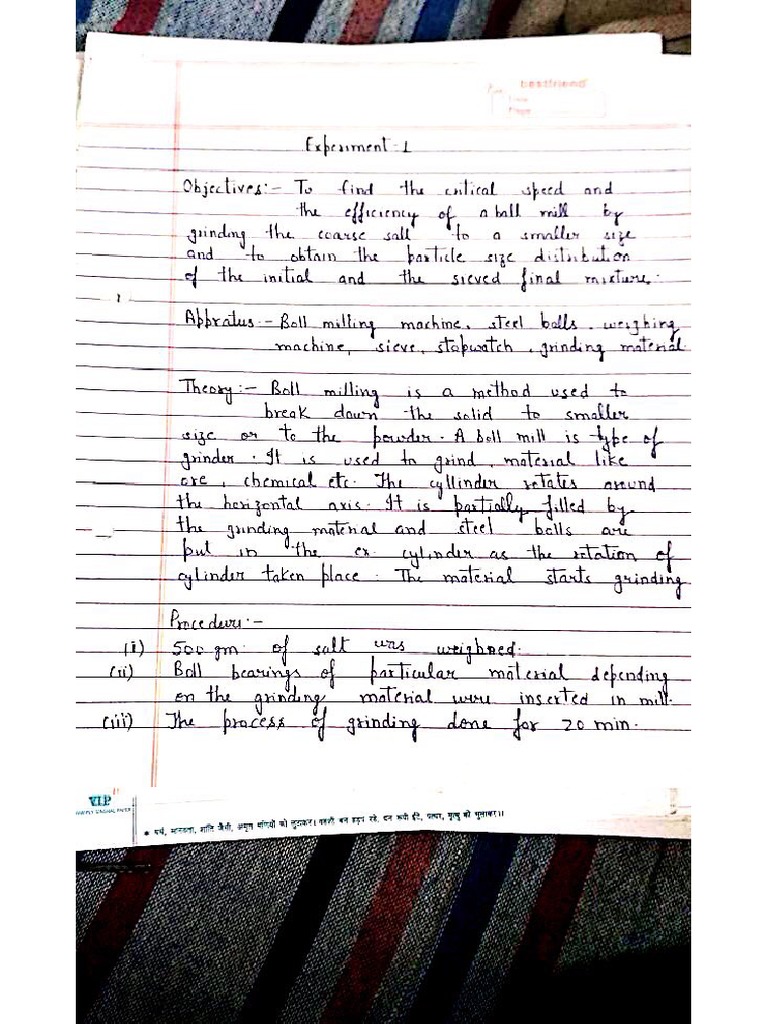 bestfriend
Page
Experiment-1
Objectives:- To find the critical speed and
the efficiency of a ball mill by
grinding the coarse salt to a smaller size
and to obtain the particle size distribution
of the initial and the sieved final mixture.
Appratus:- Ball milling machine, steel balls, weighing
machine, sieve, stopwatch, grinding material
Theory:- Ball milling is a method used to
break down the solid to smaller
size or to the powder. A ball mill is type of
grinder. It is used to grind material like
ore, chemical etc. The cyllinder rotates around
the horizontal axis. It is partially filled by
the grinding material and steel balls are
put in the cylinder as the rotation of
cylinder taken place. The material starts grinding
Procedure:-
(i) 500 gm of salt was weighned.
(ii) Ball bearings of particular material depending
on the grinding material were inserted in mill.
(iii) The process of grinding done for 20 min.
VLP